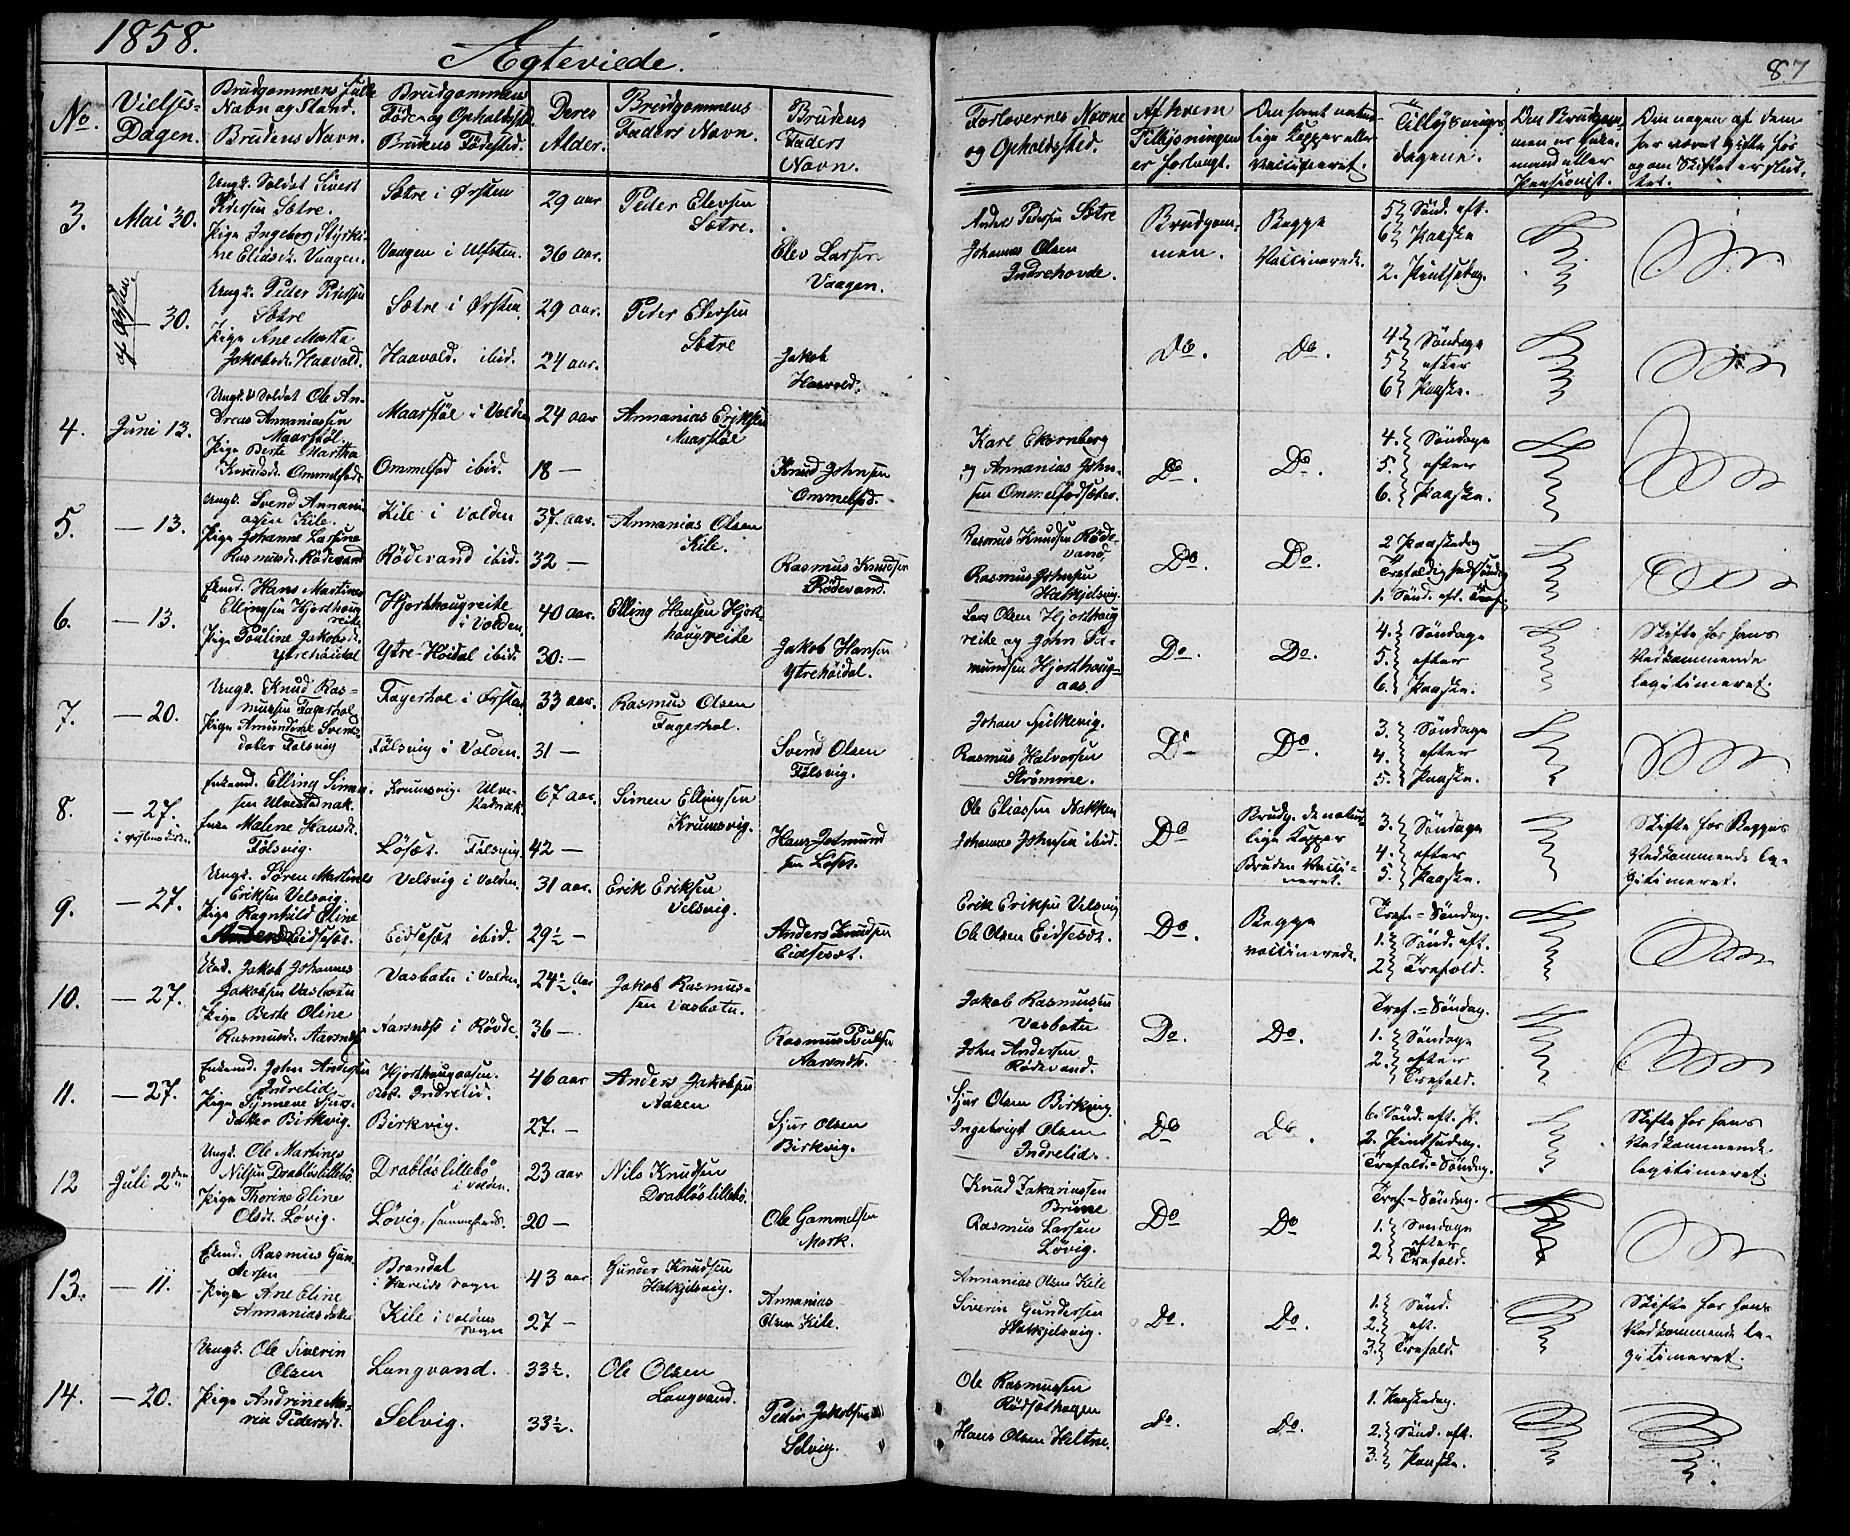 1858.
Ægteviede.
87
No.
Vielses-
Dagen.
Brudgommens fulde
Navn og Stand.
Brudens Navn.
Brudgommens
Føde og Opholdssted.
Brudens Fødested.
Deres
Alder.
Brudgommens
Faders Navn.
Brudens
Faders
Navn.
Forlovernes Navne
og Opholdssted.
Af hvem
Tillysningen
er forlangt.
Om havt natur-
lige Kopper eller
Vaccineret.
Tillysnings-
dagene.
Om Brudgom-
men er Enke-
mand eller
Pensionist.
Om nogen af dem
har været gifte før
og om Skiftet er slut-
tet.
3.
Mai 30.
Ungk. Soldat Sivert
Pedersen Sætre.
Pige Ingeborg Styrki-
ne Eliasdt. Vaagen.
Sætre i Ørsten
Vaagen i Ulfsten.
29 aar
36 aar.
Peder Elevsen
Sætre.
Elev Larsen
Vaagen.
Anders Pedersen Sætre
Johannes Olsen
Indrehovde.
Brudgom-
men.
Begge
Vaccinerede.
5 Sønd. eft.
6 Paaske
2. Pintsedag.
30.
Ungk. Peder Pedersen
Sætre
Pige Ane Marta
Jakobsdt. Haavold.
Sætre i Ørsten
Haavold. ibid.
29 aar.
24 aar.
Peder Elevsen
Sætre
Jakob
Haavold.
Do.
Do.
4 Søndage
5 efter
6 Paaske.
4.
Juni 13.
Ungk. Soldat Ole An-
dreas Annaniassen
Maarstøl.
Pige Berte Martha
Knudsdt. Ommelfods
Maarstøl i Volden
Ommelfod ibid.
24 aar
18 —
Annanias Eriksen
Maarstøl
Knud Johnsen
Ommelfod.
Karl Ekornberg
og Annanias John-
sen Ommelfodsæter.
Do.
Do.
4. Søndage
5. efter
6. Paaske.
5.
— 13.
Ungk. Svend Annani-
asen Kile.
Pige Johanne Larsine
Rasmusdt. Rødevand
Kile i Volden
Rødevand ibid.
37. aar.
32 —
Annanias Olsen
Kile.
Rasmus Knudsen
Rødevand.
Rasmus Knudsen Røde-
vand,
Rasmus Johnsen
Hatkjelsvig.
Do
Do.
2 Paaskedag
Trefoldighedssøndag
1. Sønd. eft. Tref.
6.
— 13.
Ekmd. Hans Martines
Ellingsen Hjorthoug
reite
Pige Pauline Jakobsdt.
Ytrehøidal
Hjorthougreite
i Volden.
Ytre-Høidal ibid.
40 aar.
30. —
Elling Hansen Hjort-
hougreite
Jakob Hansen
Ytrehøidal.
Lars Olsen Hjorthoug
reite og John Sa-
mundsen Hjorthoug-
aas.
Do.
Do.
4. Søndage
5. efter
6. Paaske.
Skifte for hans
Vedkommende
legitimeret.
7.
— 20.
Ungk. Knud Ras-
mussen Fagerhol
Pige Amundine Svends-
datter Følsvig
Fagerhol i Ørsten
Følsvig i Volden.
33 aar.
31 —
Rasmus Olsen
Fagerhol.
Svend Olsen
Følsvig.
Johan Hilkevig.
Rasmus Halvorsen
Strømme.
Do
Do.
3. Søndage
4. efter
5. Paaske.
8.
— 27.
Enkemd. Elling Simon-
sen Ulvestadnak.
Enke Malene Hansdt.
Følsvig.
Krumsvig. Ulve-
stadnak.
Løset. Følsvig
67 aar.
42 —
Simen Ellingsen
Krumsvig.
Hans Gotmund
sen Løset.
Ole Eliassen Nakken
Johannes Johnsen ibid.
Do
Brudg. de natur-
lige Kopper
Bruden Vacci-
neret.
3. Søndage
4. efter
5. Paaske.
Skifte for Begges
Vedkommende le-
gitimeret.
9.
— 27.
Ungk. Søren Martines
Eriksen Velsvig.
Pige Ragnhild Eline
Andersdt. Eidsesæt.
Velsvig i Volden.
Eidsesæt ibid.
31 aar.
29½ —
Erik Eriksen
Velsvig.
Anders Knudsen
Eidsesæt.
Erik Eriksen Velsvig
Ole Olsen Eidsesæt.
Do.
Begge
vaccinerede.
Tref.=Søndag.
1. Sønd. eft.
2 Trefold.
10.
— 27.
Ungk. Jakob Johannes
Jakobsen Vasbotn
Pige Berte Oline
Rasmusdt. Aarsnes
Vasbotn i Volden.
Aarsnes i Røvde.
24½ Aar
36 —
Jakob Rasmus-
sen Vasbotn.
Rasmus Poulsen
Aarsnes.
Jakob Rasmussen
Vasbotn
John Andersen
Rødevand.
Do.
Do.
Tref.=Søndag.
1. Søndage
2. efter
Trefold.
11.
— 27.
Enkemd. John Andersen
Indrelid
Pige Synneve Sjurs-
datter Birkvig.
Hjorthougaasen.
Indrelid.
Birkvig.
46 aar
27. —
Anders Jakobsen
Aasen
Sjur Olsen
Birkvig.
Sjur Olsen Birkvig
Ingebrigt Olsen
Indrelid.
Do
Do.
6. Sønd. eft. P.
2. Pintsedag.
Trefold.=Søndag.
Skifte for hans
Vedkommende
legitimeret.
12
Juli 2den
Ungk. Ole Martines
Nilsen Drabløslillebø.
Pige Thorine Eline
Olsdt. Løvig.
Drabløslillebø
i Volden.
Løvig, sammesteds.
23 aar
20 —
Nils Knudsen
Drabløslillebø.
Ole Gammelsen
Mork.
Knud Zakariassen
Brune
Rasmus Larsen
Løvig.
Do
Do
Tref.=Søndag.
1. Søndage
efter
2 Trefold.
13.
— 11.
Ekmd. Rasmus Gun-
dersen
Pige Ane Eline
Annaniasdatter
Brandal
i Hareids Sogn
Kile i Voldens
Sogn
43 aar
27 —
Gunder Knudsen
Hatkjelsvig.
Annanias
Olsen Kile.
Annanias Olsen Kile
Siverin Gundersen
Hatkjelsvig.
Do.
Do.
1. Sønd.
2. eft.
3. Trefold.
Skifte for hans
Vedkommende le-
gitimeret.
14.
— 20.
Ungk. Ole Siverin
Olsen
Pige Andrine Ma-
rie Pedersdt.
Langvand.
Selvig.
33½.
33½.
Ole Olsen
Langvand.
Peder Jakobsen
Selvig.
Ole Rasmussen
Rødsethagen
Hans Olsen Heltne.
Do.
Do.
1. Paaskedag.
2. Sønd. eft.
3. Paaske.